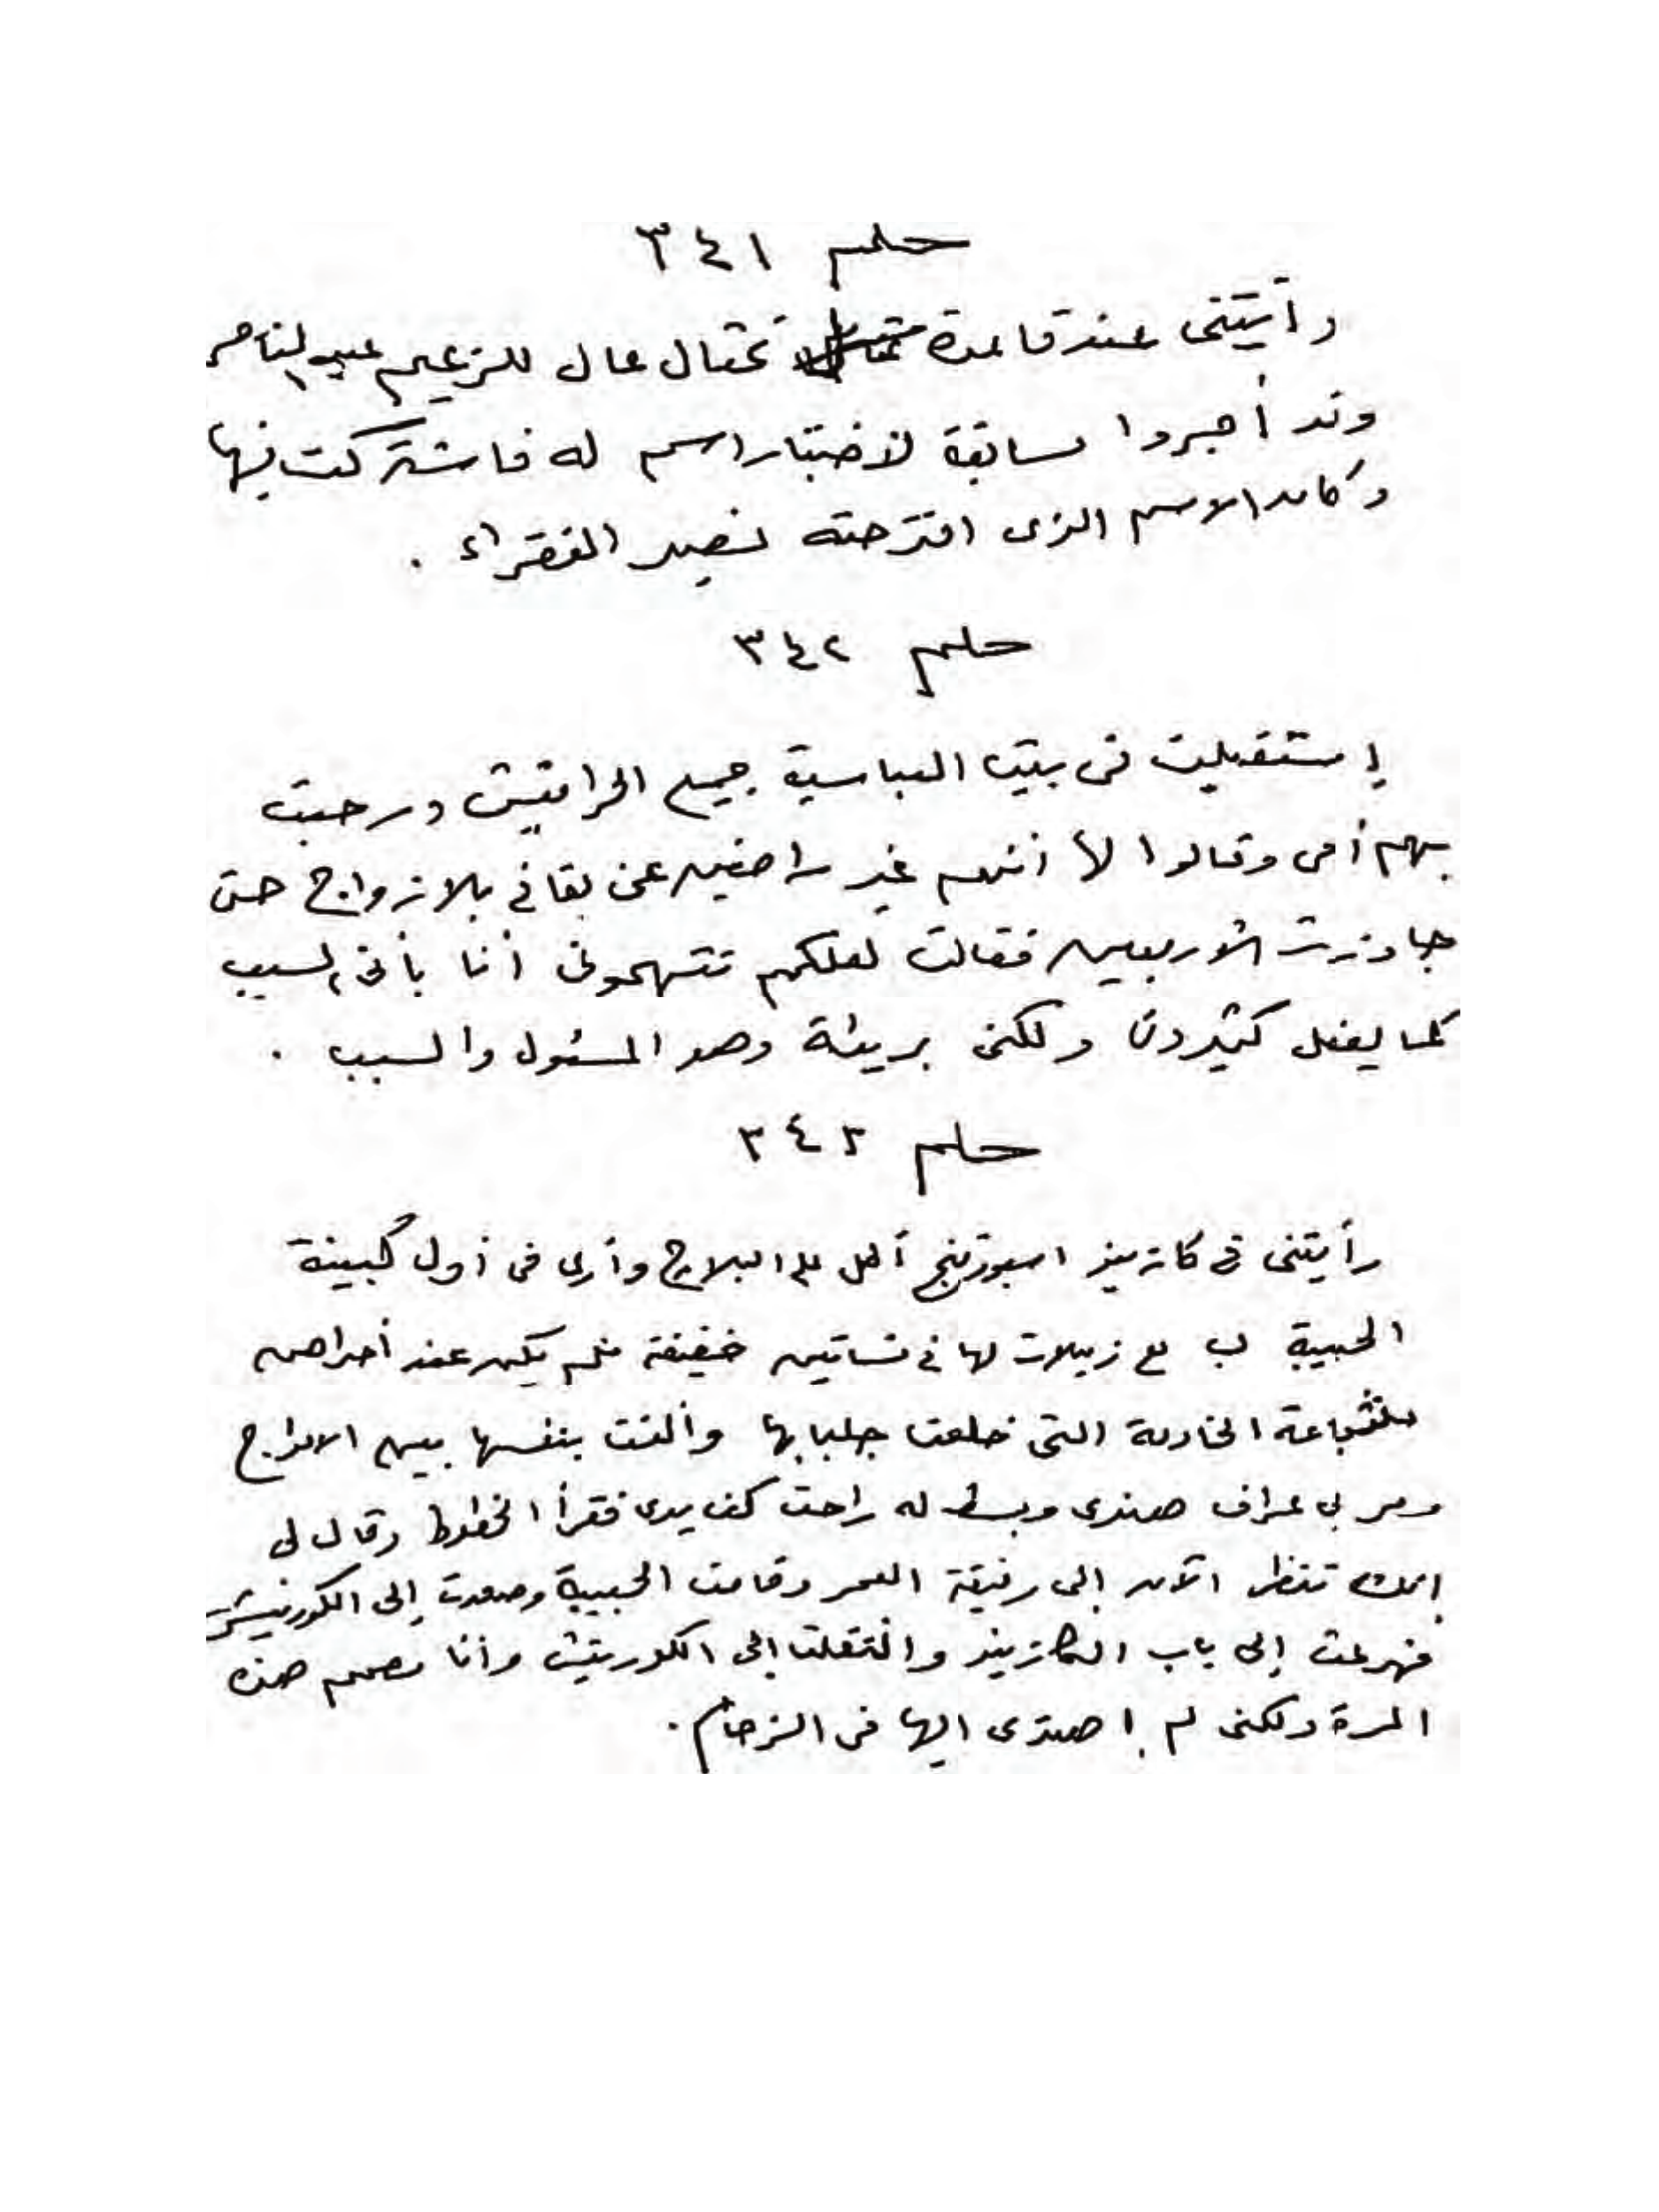 حلم ٣٤١
رأيتنى عند قاعدة تمثال عال للزعيم عبد الناصر
وقد أجروا مسابقة لاختيار اسم له فاشتركت فيها
وكان الاسم الذى اقترحته نصير الفقراء .
حلم ٣٤٢
إستقبلت فى بيت العباسية جميع الحرافيش ورحبت
بهم أمى وقالوا لها أنهم غير راضين عن بقائى بلا زواج حتى
جاوزت الأربعين فقالت لعلكم تتهمونى أنا بأنى السبب
كما يفعل كثيرون ولكنى بريئة وهو المسئول والسبب .
حلم ٣٤٣
رأيتنى فى كازينو اسبورتنج أطل على البلاج وأرى فى أول كبينة
الحبيبة ب مع زميلات لها فى فساتين خفيفة فلم يكن عند أحداهن
شجاعة الخادمة التى خلعت جلبابها وألقت بنفسها بين الامواج
ومر بى عراف هندى وبسط له راحت كف يدى فقرأ الخطوط وقال لى
إنك تنظر الآن إلى رفيقة العمر وقامت الحبيبة وصعدت إلى الكورنيش
فهرعت إلى باب الكازينو وانتقلت إلى الكورنيش وأنا مصمم هذه
المرة ولكنى لم إهتدى اليها فى الزحام .